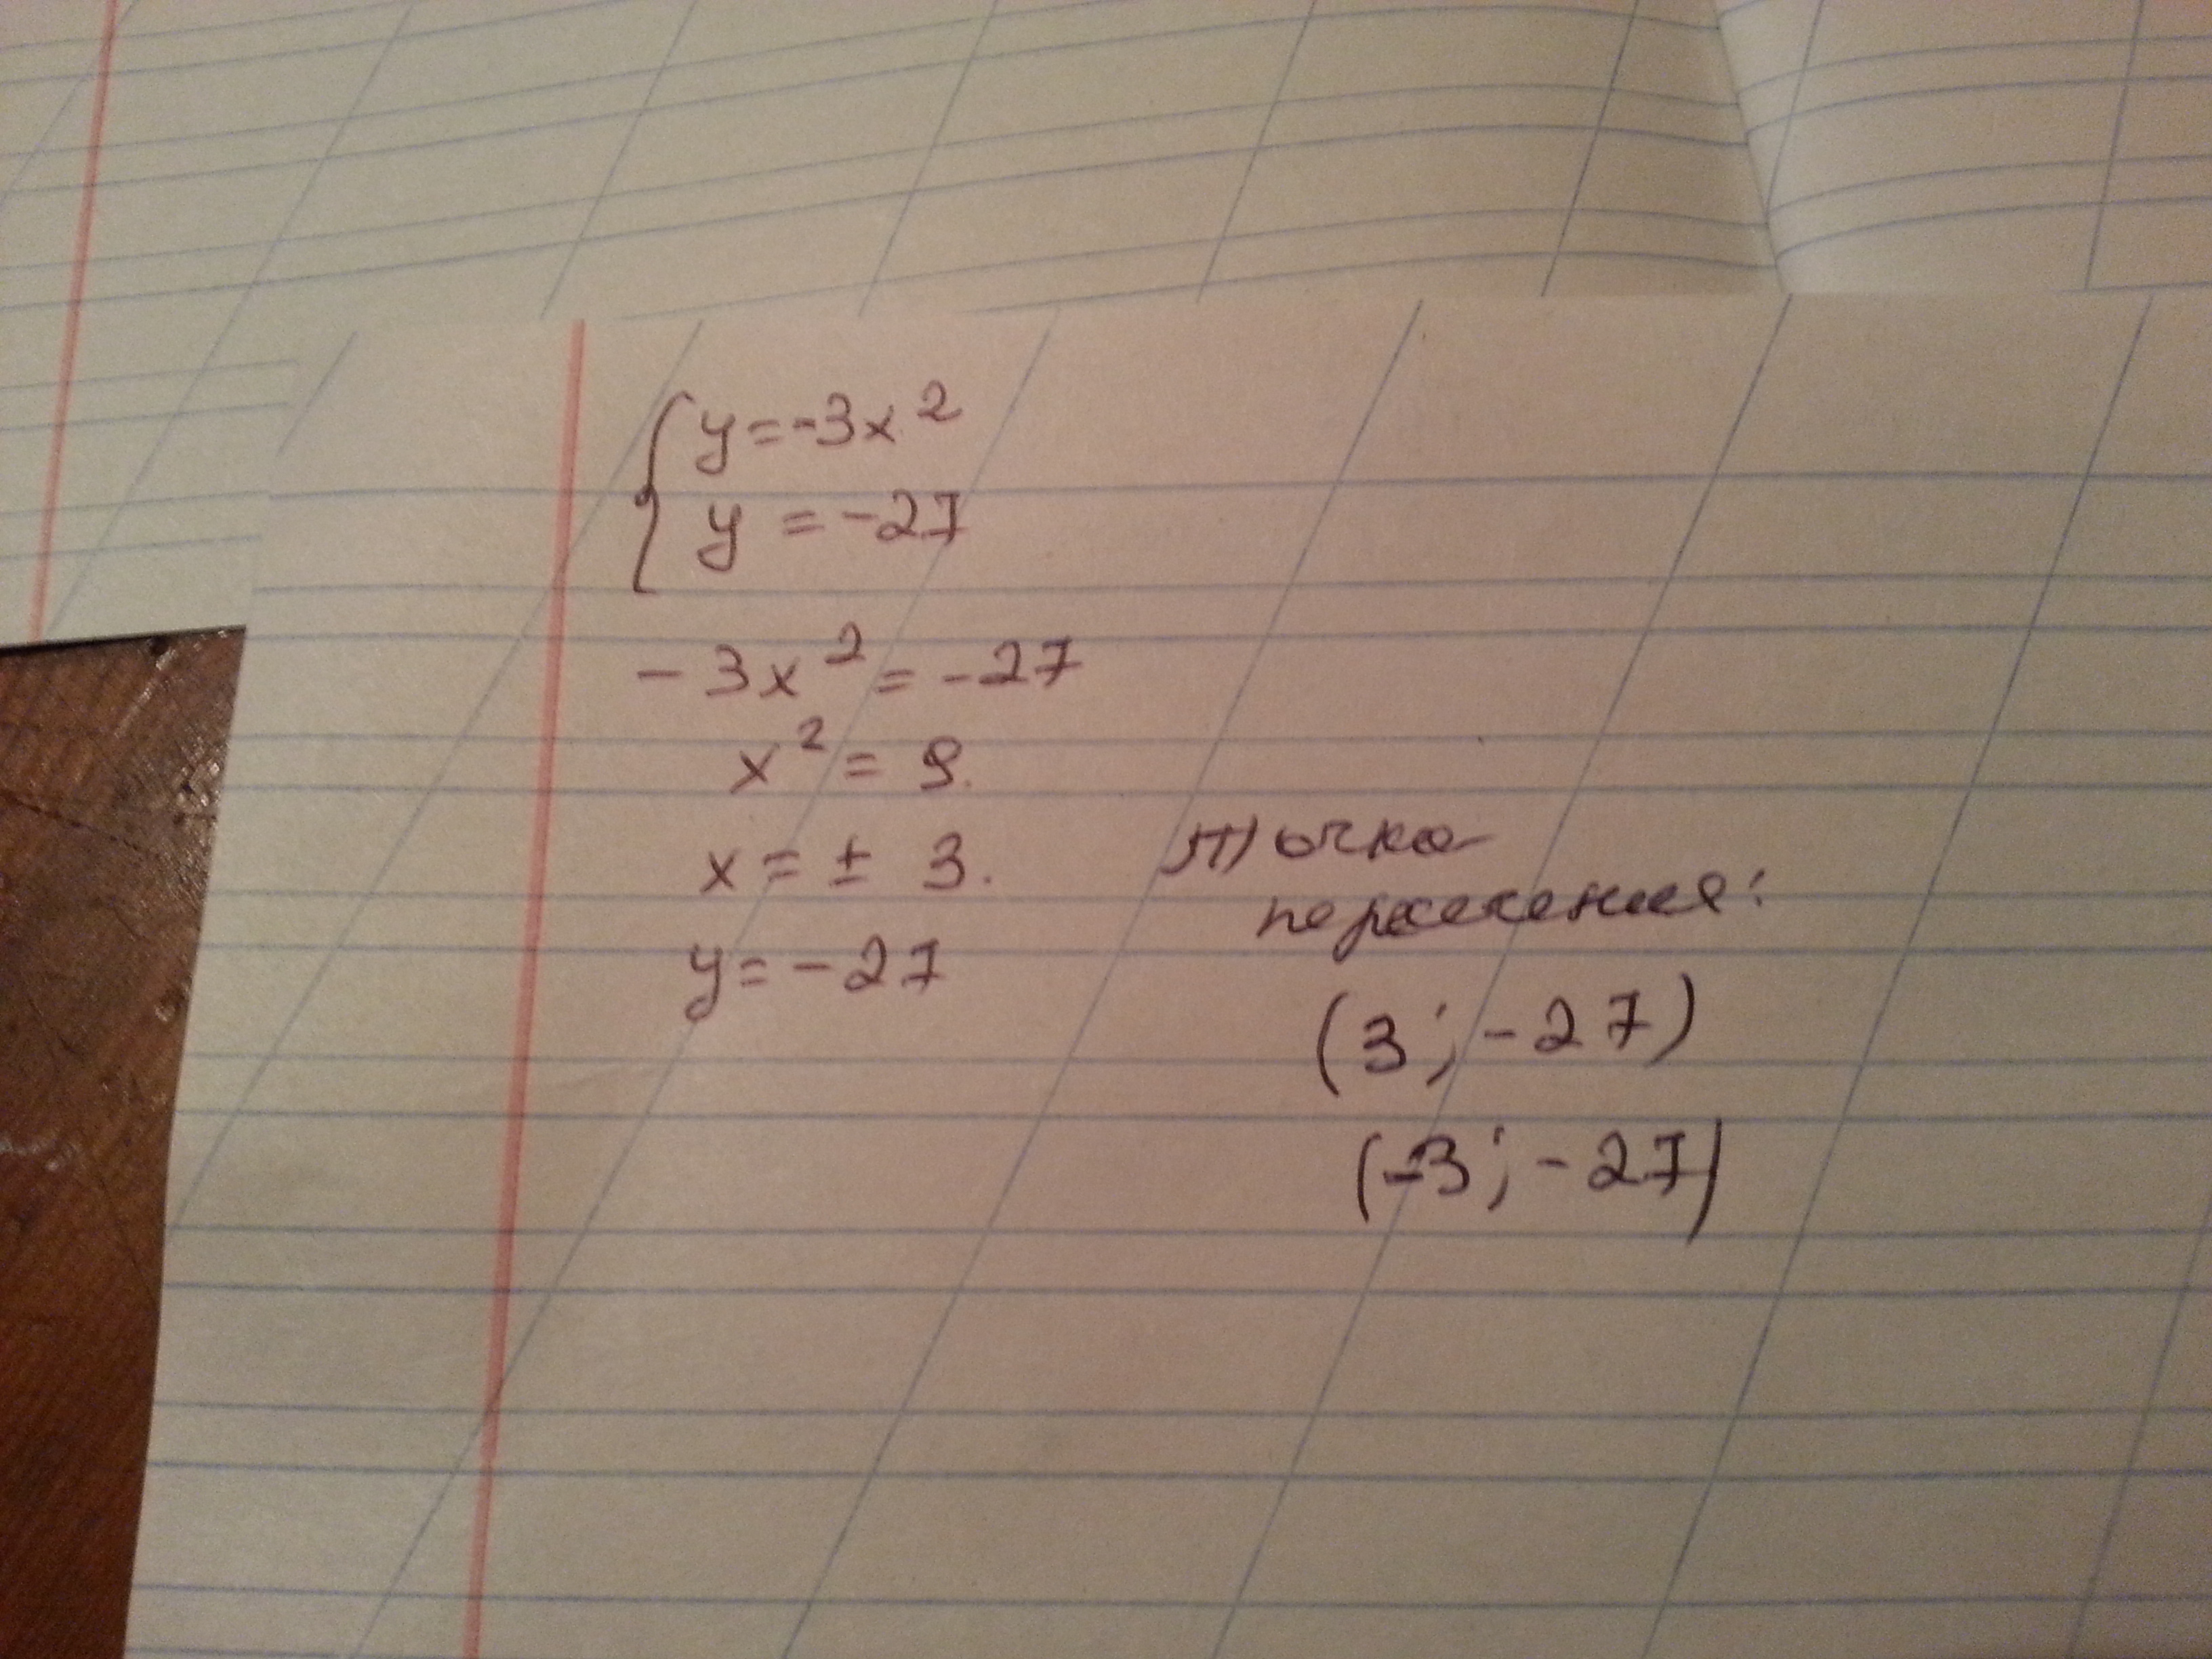 y = -3x²
y = -27
- 3x² = -27
x² = 9.
x = ± 3.
y = -27
точка
пересечения:
(3; -27)
(-3; -27)